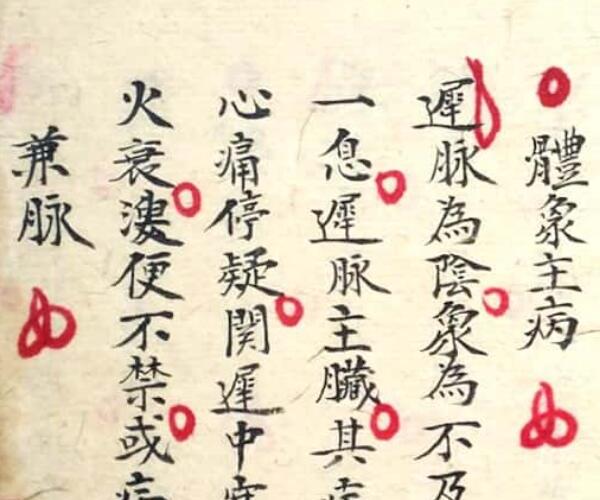 體象主病
遲脉為陰象為不及
一息遲脉主臟其
心痛停疑関遲中
火衰溲便不禁或
兼脉